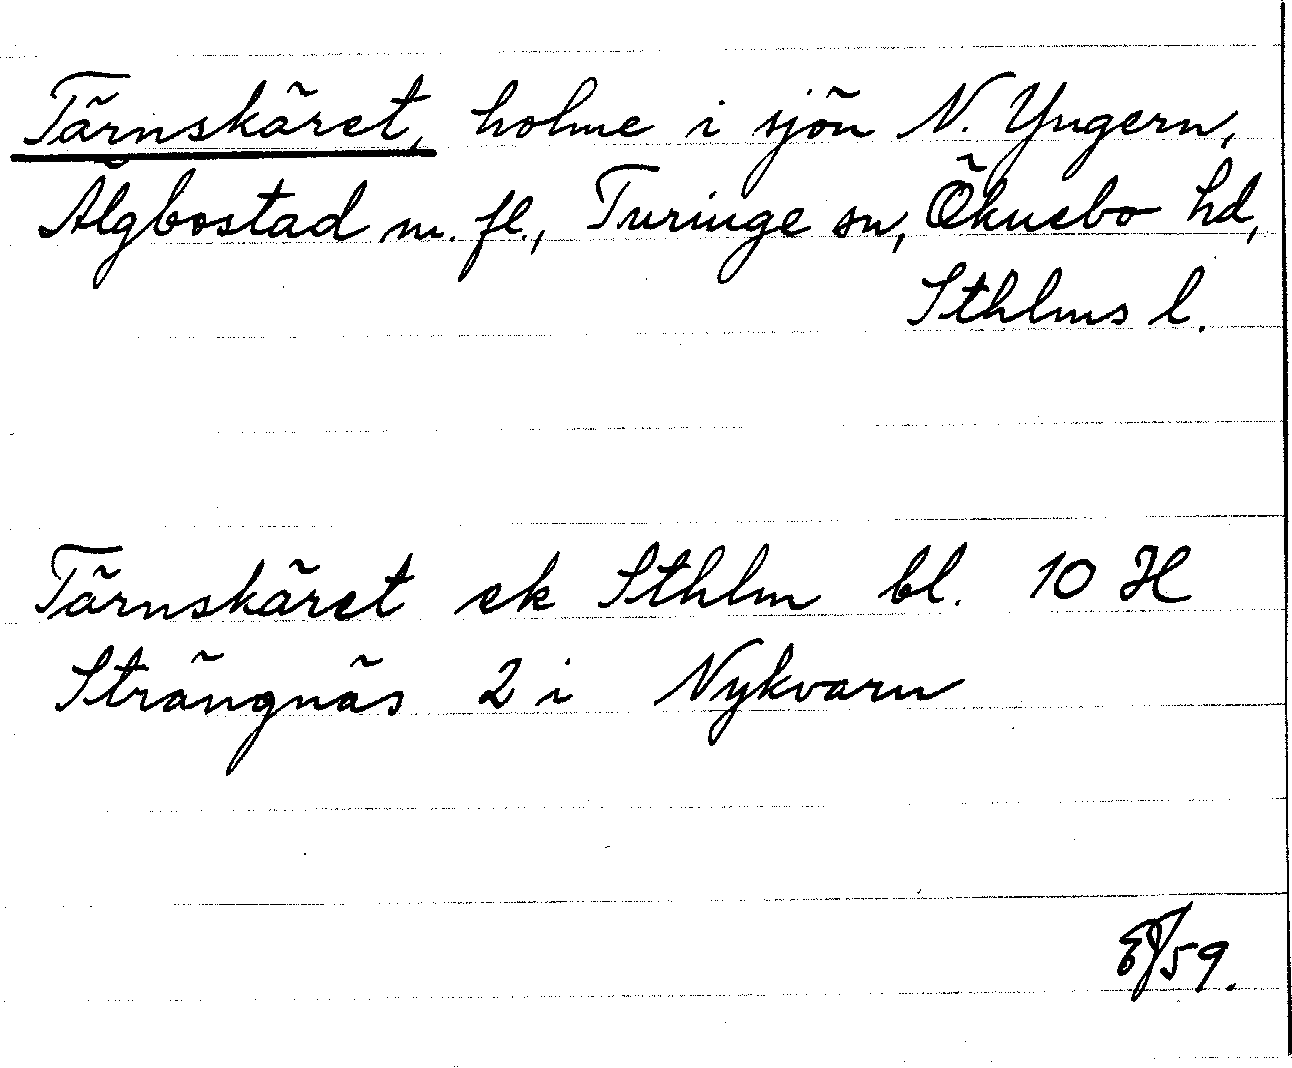 Tärnskäret, holme i sjön N. Yngern,
Älgbostad m. fl., Turinge sn, Öknebo hd,
Sthlms l.
Tärnskäret ek Sthlm bl. 10 H
Strängnäs 2 i Nykvarn
59.